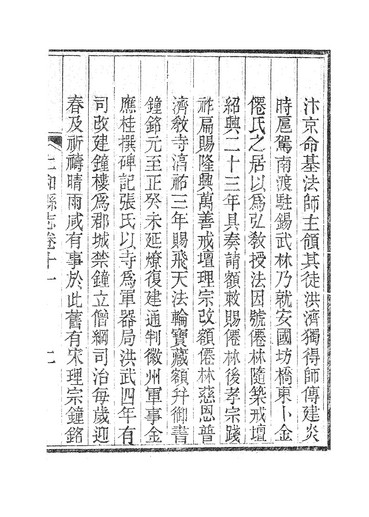 汴京命基法師主領其徒洪濟獨得師傳建炎
時扈駕南渡駐錫武林乃就安國坊橋東卜金
僊氏之居以爲弘敎授法因號僊林隨築戒壇
紹興二十三年具奏請額敕賜僊林後孝宗踐
祚扁賜隆興萬善戒壇理宗改額僊林慈恩普
濟敎寺淳祐三年賜飛天法輪寶藏額幷御書
鐘銘元至正癸未延燎復建通判徽州軍事金
應桂撰碑記張氏以寺爲軍器局洪武四年有
司改建鐘樓爲郡城禁鐘立僧綱司治每歲迎
春及祈禱晴雨咸有事於此舊有宋理宗鐘銘
仁和縣志卷十一 二